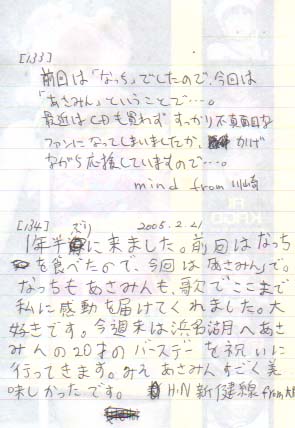 [133]
前回は「なっち」でしたので、今回は
「あさみん」ということで…。
最近はCDも買わず すっかり不真面目な
ファンになってしまいましたが、かげ
ながら応援していますので…。
mind from 川崎
[134] 2005.2.21
1年半ズリに来ました。前回はなっち
を食べたので、今回は「あさみん」で。
なっちもあさみんも、歌でここまで
私に感動を届けてくれました。大
好きです。今週末は浜名湖へあさ
みんの20才のバースデーを祝いに
行ってきます。みえ あさみん すごく美
味しかったです。 H.N 新健線 from